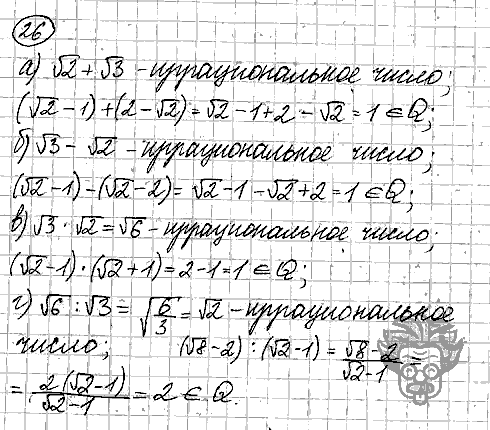 26
а) √2 + √3 - иррациональное число;
(√2 - 1) + (2 - √2) = √2 - 1 + 2 - √2 = 1 ∈ Q;
б) √3 - √2 - иррациональное число;
(√2 - 1) - (√2 - 2) = √2 - 1 - √2 + 2 = 1 ∈ Q;
в) √3 · √2 = √6 - иррациональное число;
(√2 - 1) · (√2 + 1) = 2 - 1 = 1 ∈ Q;
г) √6 : √3 = √(6/3) = √2 - иррациональное
число; (√8 - 2) : (√2 - 1) = (√8 - 2)/(√2 - 1) =
= 2(√2 - 1)/(√2 - 1) = 2 ∈ Q.